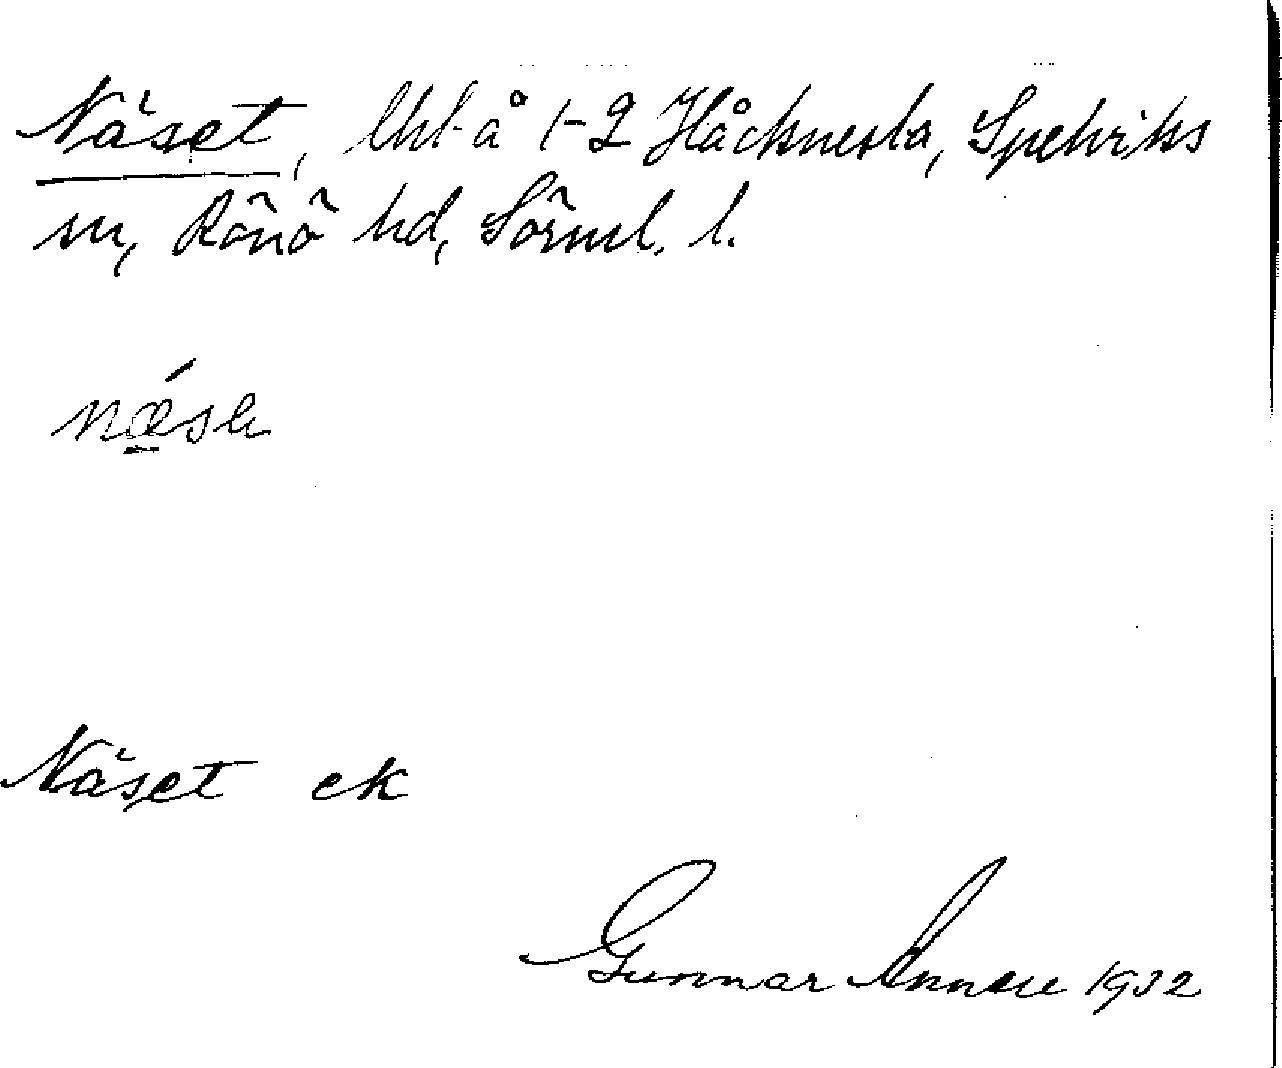 Näset, Utl. å 1-2 Håcknesta, Spelviks
sn, Rönö hd, Sörml. l.
Näset ek
Gunnar 1932